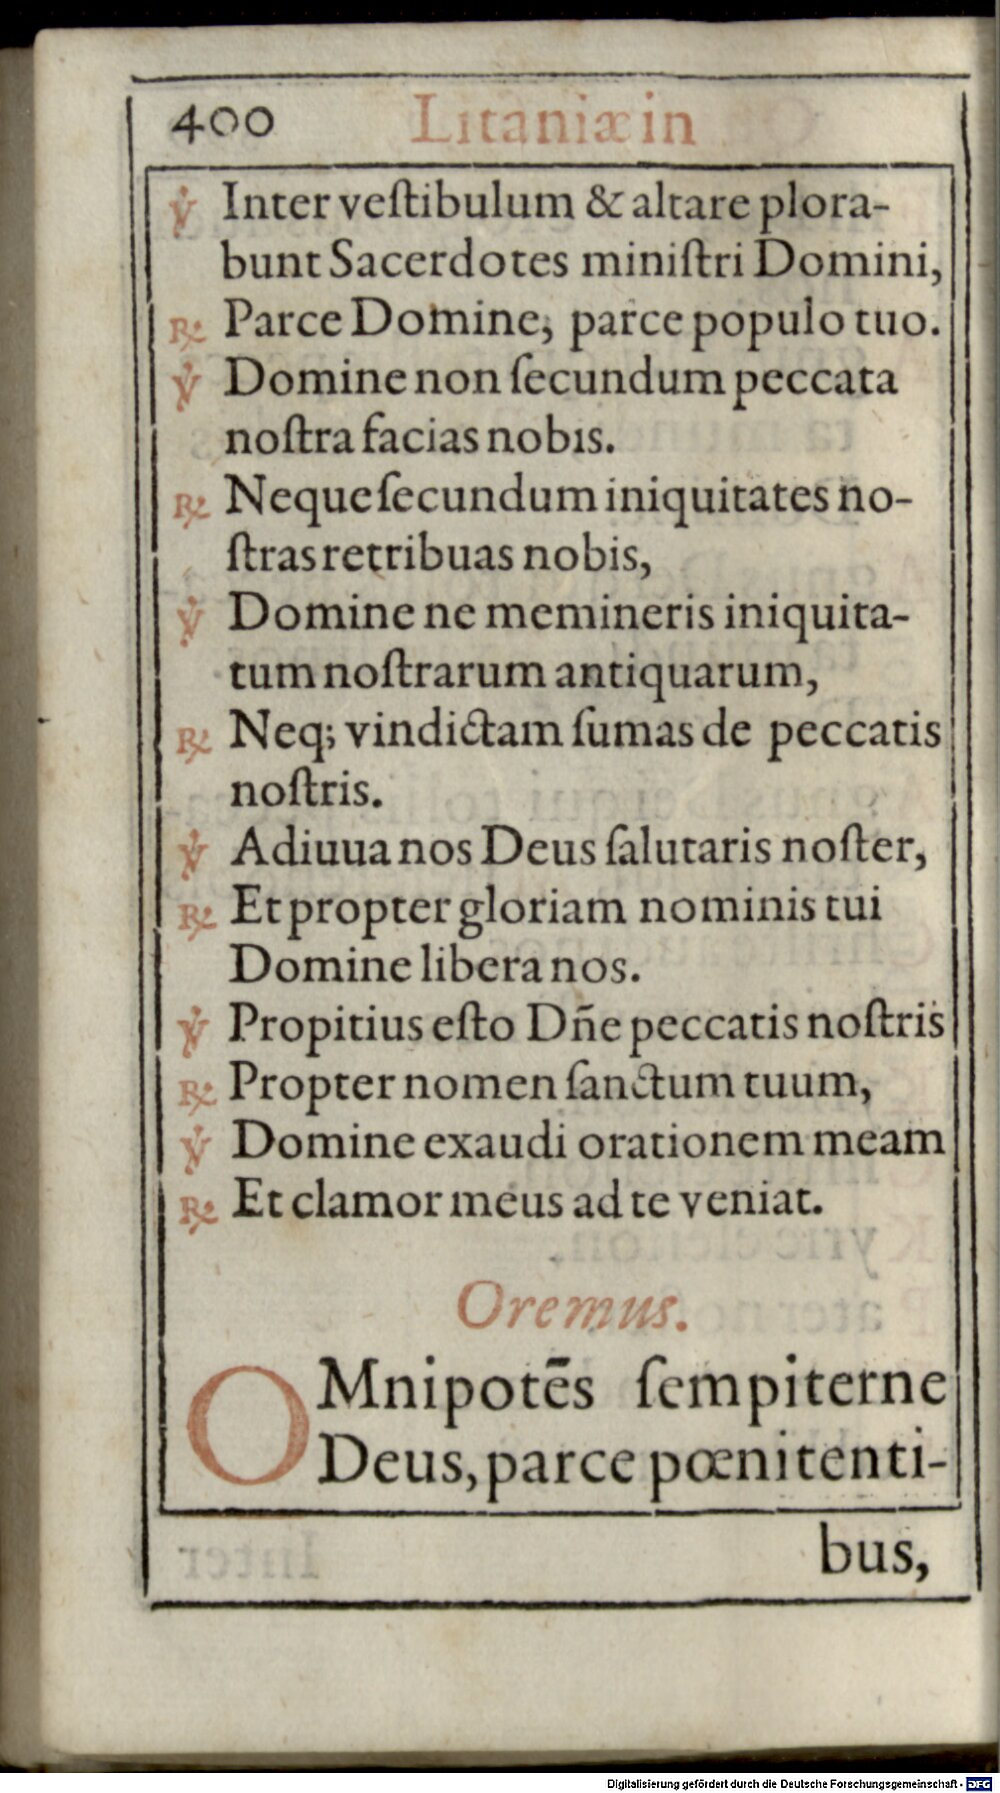 400 Litaniæ in
℣ Inter veſtibulum & altare plora-
bunt Sacerdotes miniſtri Domini,
℟ Parce Domine, parce populo tuo.
℣ Domine non ſecundum peccata
noſtra facias nobis.
℟ Neque ſecundum iniquitates no-
ſtras retribuas nobis,
℣ Domine ne memineris iniquita-
tum noſtrarum antiquarum,
℟ Neq; vindictam ſumas de peccatis
noſtris.
℣ Adiuua nos Deus ſalutaris noſter,
℟ Et propter gloriam nominis tui
Domine libera nos.
℣ Propitius eſto Dñe peccatis noſtris
℟ Propter nomen ſanctum tuum,
℣ Domine exaudi orationem meam
℟ Et clamor meus ad te veniat.
Oremus.
OMnipotēs ſempiterne
Deus, parce pœnitenti-
bus,
Digitalisierung gefördert durch die Deutsche Forschungsgemeinschaft - DFG